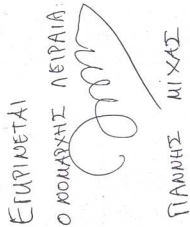 ΕΓΚΡΙΝΕΤΑΙ
Ο ΝΟΜΑΡΧΗΣ ΠΕΙΡΑΙΑ:
ΓΙΑΝΝΗΣ ΜΙΧΑΣ